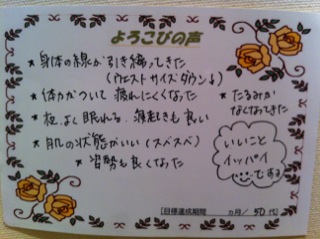 よろこびの声
★身体の線が引き締ってきた
(ウエストサイズダウン↓)
★体力がついて疲れにくくなった
★たるみが
なくなってきた
★夜よく眠れる、寝起きも良い
★肌の状態がいい(スベスベ)
★姿勢も良くなった
いいこと
イッパイ
です♪
[目標達成期間 カ月/50代]